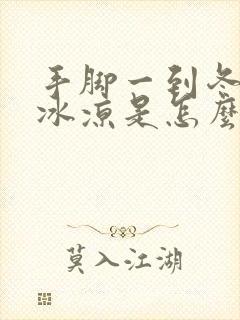 手脚一到冬
冰凉是怎麼
莫入江湖